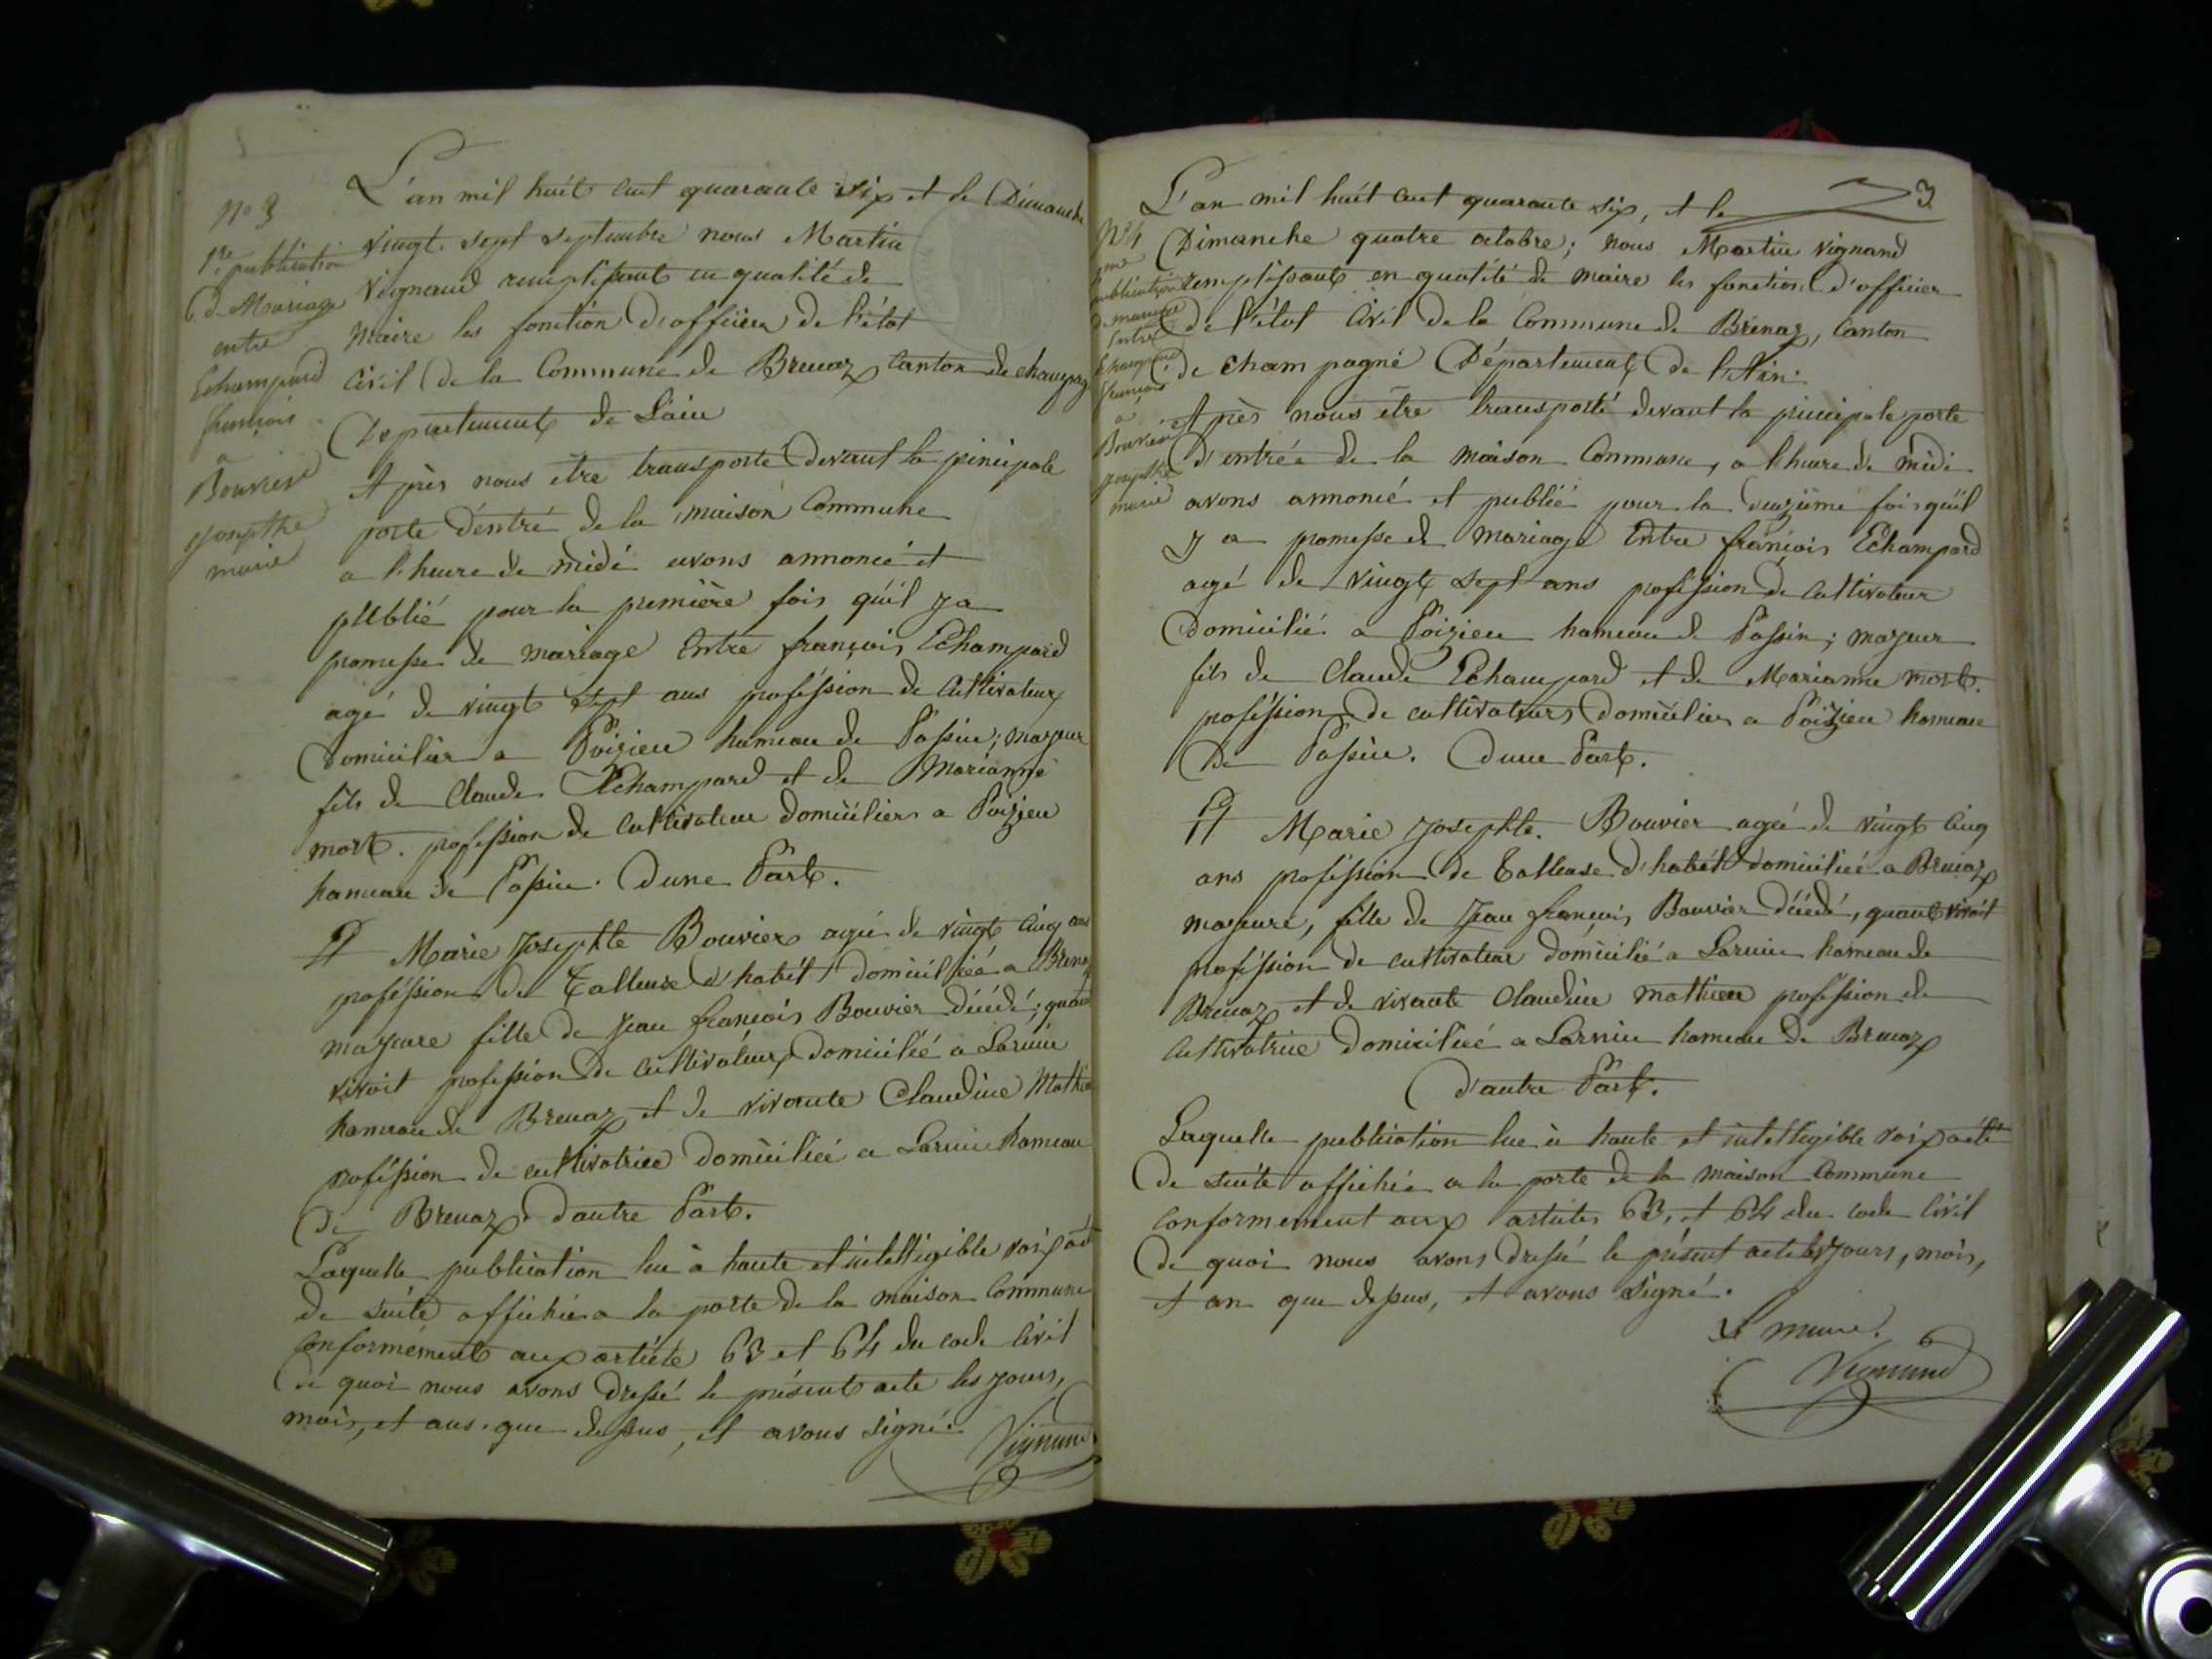 N° 3
1re publication
de Mariage
entre
Echampard
françois
a
Bouvier
josepthe
marie
L'an mil huit cent quarante six et le Dimanche
vingt sept septembre nous Martin
Vignand remplissant en qualité de
Maire les fonction d'officier de l'état
Civil de la Commune de Brenaz Canton de champag
Département de L'ain
Après nous être transporté devant la pincipale
porte d'entré de la maison Commune
a l'heure de midi avons annoncé et
publié pour la première fois qu'il y a
promesse de mariage Entre françois Echampard
agé de vingt sept ans proféssion de Cultivateur
Domicilier a Poizieu hameau de Passin; mayeur
fils de Claude Echampard et de Marianne
mort. profession de Cultivateur domiciliers a Poizieu
hameau de Passin. D'une Part.
Et Marie Josephte Bouvier agée de vingt Cinq ans
proféssion de Talleuse d'habit domiciliéé a Brenaz
mayeure fille de Jean françois Bouvier décédé; quant
vivoit profession de Cultivateur domicilié a Larnin
hameau de Brenaz et de vivante Claudine Mathieu
proféssion de cultivatrice domiciliée a Larnin hameau
de Brenaz d'autre Part.
Laquelle publication lue à haute et intelligible voix a été
de suite affichée a la porte de la maison Commune
Conformément aux article 63 et 64 du code Civil
de quoi nous avons dressé le présent acte les jours,
mois, et ans que dessus, et avons signé.
Vignand
3
N° 4
2me
publication
de mariage
Entre
Echampard
françois
a
Bouvier
josepthe
marie
L'an mil huit cent quarante six, et le
Dimanche quatre octobre; nous Martin Vignand
remplissant en qualité de maire les fonction d'officier
de l'état Civil de la Commune de Brenaz, Canton
de Champagne Département de l'Ain.
Après nous être transporté devant la principale porte
d'entrée de la maison Commune, a l'heure de midi
avons annoncé et publié pour la deuzième fois qu'il
y a promesse de mariage Entre françois Echampard
agé de vingt sept ans proféssion de Cultivateur
Domicilié a Poizieu hameau de Passin; mayeur
fils de Claude Echampard et de Marianne mort.
proféssion de cultivateurs domicilier a Poizieu hameau
de Passin. D'une Part.
Et Marie Josephte. Bouvier agée de vingt Cinq
ans proféssion de Talleuse d'habit domiciliéé a Brenaz
mayeure, fille de Jean françois Bouvier décédé, quant vivoit
proféssion de cultivateur domicilié a Larnin hameau de
Brenaz et de vivante Claudine Mathieu proféssion de
Cultivatrice domiciliéé a Larnin hameau de Brenaz
d'autre Part.
Laquelle publication lue à haute et intelligible voix a été
de suite affichée a la porte de la maison Commune
Conformement aux articles 63, et 64 du code Civil
de quoi nous avons dressé le présent acte les jours, mois,
et an que dessus, et avons signé.
Le maire.
Vignand